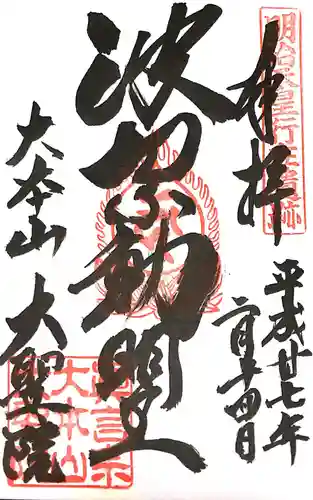 明治天皇行在
奉拝
平成廿七年
月十四日
波切不動明王
大本山 大聖院
真言宗
大本山
大聖院